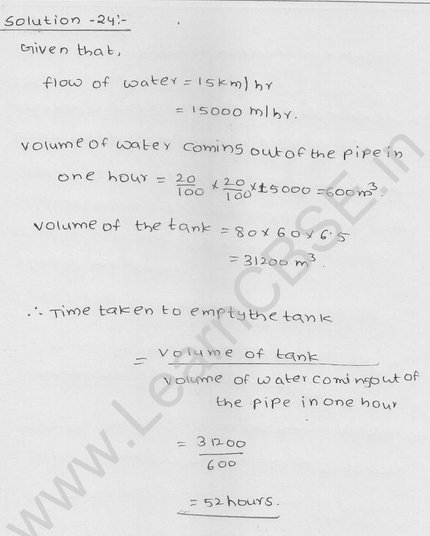 Solution -24:-
Given that,
flow of water = 15km/hr
= 15000 m/hr.
volume of water coming out of the pipe in
one hour = 20/100 × 20/100 × 15000 = 600m³.
volume of the tank = 80 × 60 × 6.5
= 31200 m³.
∴ Time taken to empty the tank
= volume of tank
volume of water coming out of
the pipe in one hour
= 31200
600
= 52 hours.
www.LearnCBSE.in